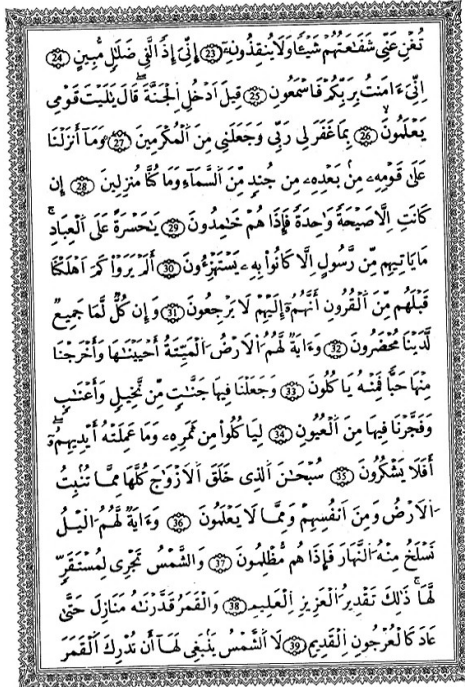 تُغْنِ عَنِّے شَفَٰعَتُهُمْ شَيْـًٔا وَلَا يُنقِذُونِۦ 23 إِنِّيَ إِذاً لَّفِے ضَلَٰلٖ مُّبِينٍ 24
اِنِّيَ ءَامَنتُ بِرَبِّكُمْ فَاسْمَعُونِ 25 قِيلَ اَدْخُلِ اِلْجَنَّةَ قَالَ يَٰلَيْتَ قَوْمِے
يَعْلَمُونَ 26 بِمَا غَفَرَ لِے رَبِّے وَجَعَلَنِے مِنَ اَلْمُكْرَمِينَ 27 وَمَآ أَنزَلْنَا
عَلَىٰ قَوْمِهِۦ مِنۢ بَعْدِهِۦ مِن جُندٖ مِّنَ اَلسَّمَآءِ وَمَا كُنَّا مُنزِلِينَ 28 إِن
كَانَتِ اِلَّا صَيْحَةً وَٰحِدَةً فَإِذَا هُمْ خَٰمِدُونَ 29 يَٰحَسْرَةً عَلَى اَلْعِبَادِ
مَا يَاتِيهِم مِّن رَّسُولٍ اِلَّا كَانُواْ بِهِۦ يَسْتَهْزِءُونَ 30 أَلَمْ يَرَوْاْ كَمَ اَهْلَكْنَا
قَبْلَهُم مِّنَ اَلْقُرُونِ أَنَّهُمُۥٓ إِلَيْهِمْ لَا يَرْجِعُونَ 31 وَإِن كُلّٞ لَّمَا جَمِيعٞ
لَّدَيْنَا مُحْضَرُونَ 32 وَءَايَةٞ لَّهُمُ اُلَارْضُ اُلْمَيِّتَةُ أَحْيَيْنَٰهَا وَأَخْرَجْنَا
مِنْهَا حَبّاً فَمِنْهُ يَاكُلُونَ 33 وَجَعَلْنَا فِيهَا جَنَّٰتٖ مِّن نَّخِيلٖ وَأَعْنَٰبٖ
وَفَجَّرْنَا فِيهَا مِنَ اَلْعُيُونِ 34 لِيَاكُلُواْ مِن ثَمَرِهِۦ وَمَا عَمِلَتْهُ أَيْدِيهِمُۥٓ
أَفَلَا يَشْكُرُونَ 35 سُبْحَٰنَ اَلذِے خَلَقَ اَلَازْوَٰجَ كُلَّهَا مِمَّا تُنۢبِتُ
اُلَارْضُ وَمِنَ اَنفُسِهِمْ وَمِمَّا لَا يَعْلَمُونَ 36 وَءَايَةٞ لَّهُمُ اُليْلُ
نَسْلَخُ مِنْهُ اُلنَّهَارَ فَإِذَا هُم مُّظْلِمُونَ 37 وَالشَّمْسُ تَجْرِے لِمُسْتَقَرّٖ
لَّهَا ذَٰلِكَ تَقْدِيرُ اُلْعَزِيزِ اِلْعَلِيمِ 38 وَالْقَمَرُ قَدَّرْنَٰهُ مَنَازِلَ حَتَّىٰ
عَادَ كَالْعُرْجُونِ اِلْقَدِيمِ 39 لَا اَلشَّمْسُ يَنۢبَغِے لَهَآ أَن تُدْرِكَ اَلْقَمَرَ